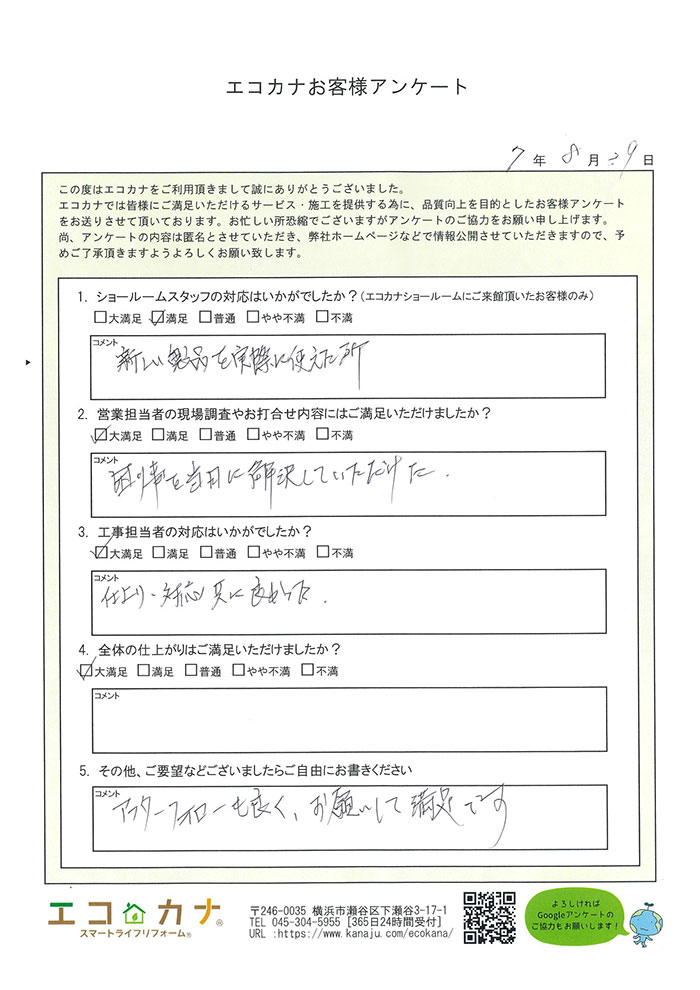 エコカナお客様アンケート
7年 8月 29日
この度はエコカナをご利用頂きまして誠にありがとうございました。
エコカナでは皆様にご満足いただけるサービス・施工を提供する為に、品質向上を目的としたお客様アンケート
をお送りさせて頂いております。お忙しい所恐縮でございますがアンケートのご協力をお願い申し上げます。
尚、アンケートの内容は匿名とさせていただき、弊社ホームページなどで情報公開させていただきますので、予
めご了承頂きますようよろしくお願い致します。
1. ショールームスタッフの対応はいかがでしたか？(エコカナショールームにご来館頂いたお客様のみ)
□大満足 ☑満足 □普通 □やや不満 □不満
コメント
新しい製品を実際に使えた所
2. 営業担当者の現場調査やお打合せ内容にはご満足いただけましたか？
☑大満足 □満足 □普通 □やや不満 □不満
コメント
困り事を当日に解決していただけた.
3. 工事担当者の対応はいかがでしたか？
☑大満足 □満足 □普通 □やや不満 □不満
コメント
仕上り・対応共に良かった.
4. 全体の仕上がりはご満足いただけましたか？
☑大満足 □満足 □普通 □やや不満 □不満
コメント
5. その他、ご要望などございましたらご自由にお書きください
コメント
アフターフォローも良く、お願いして満足です
エコカナ®
スマートライフリフォーム®
〒246-0035 横浜市瀬谷区下瀬谷3-17-1
TEL 045-304-5955 [365日24時間受付]
URL :https://www.kanaju.com/ecokana/
よろしければ
Googleアンケートの
ご協力もお願いします！